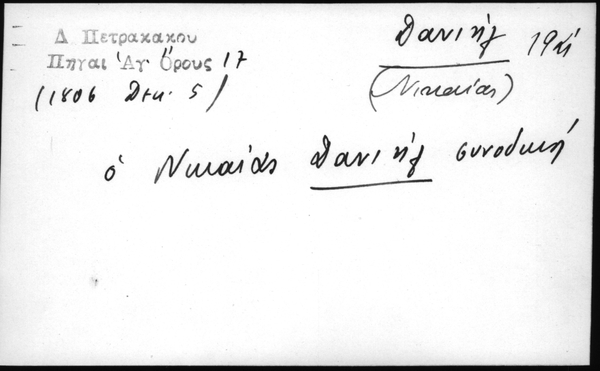 Δ Πετρακακου
Πηγαι Ἁγ. Ὄρους 17
(1806 Δεκ. 5)
Δανιήλ
(Νικαίας)
ὁ Νικαίας Δανιήλ συνοδική